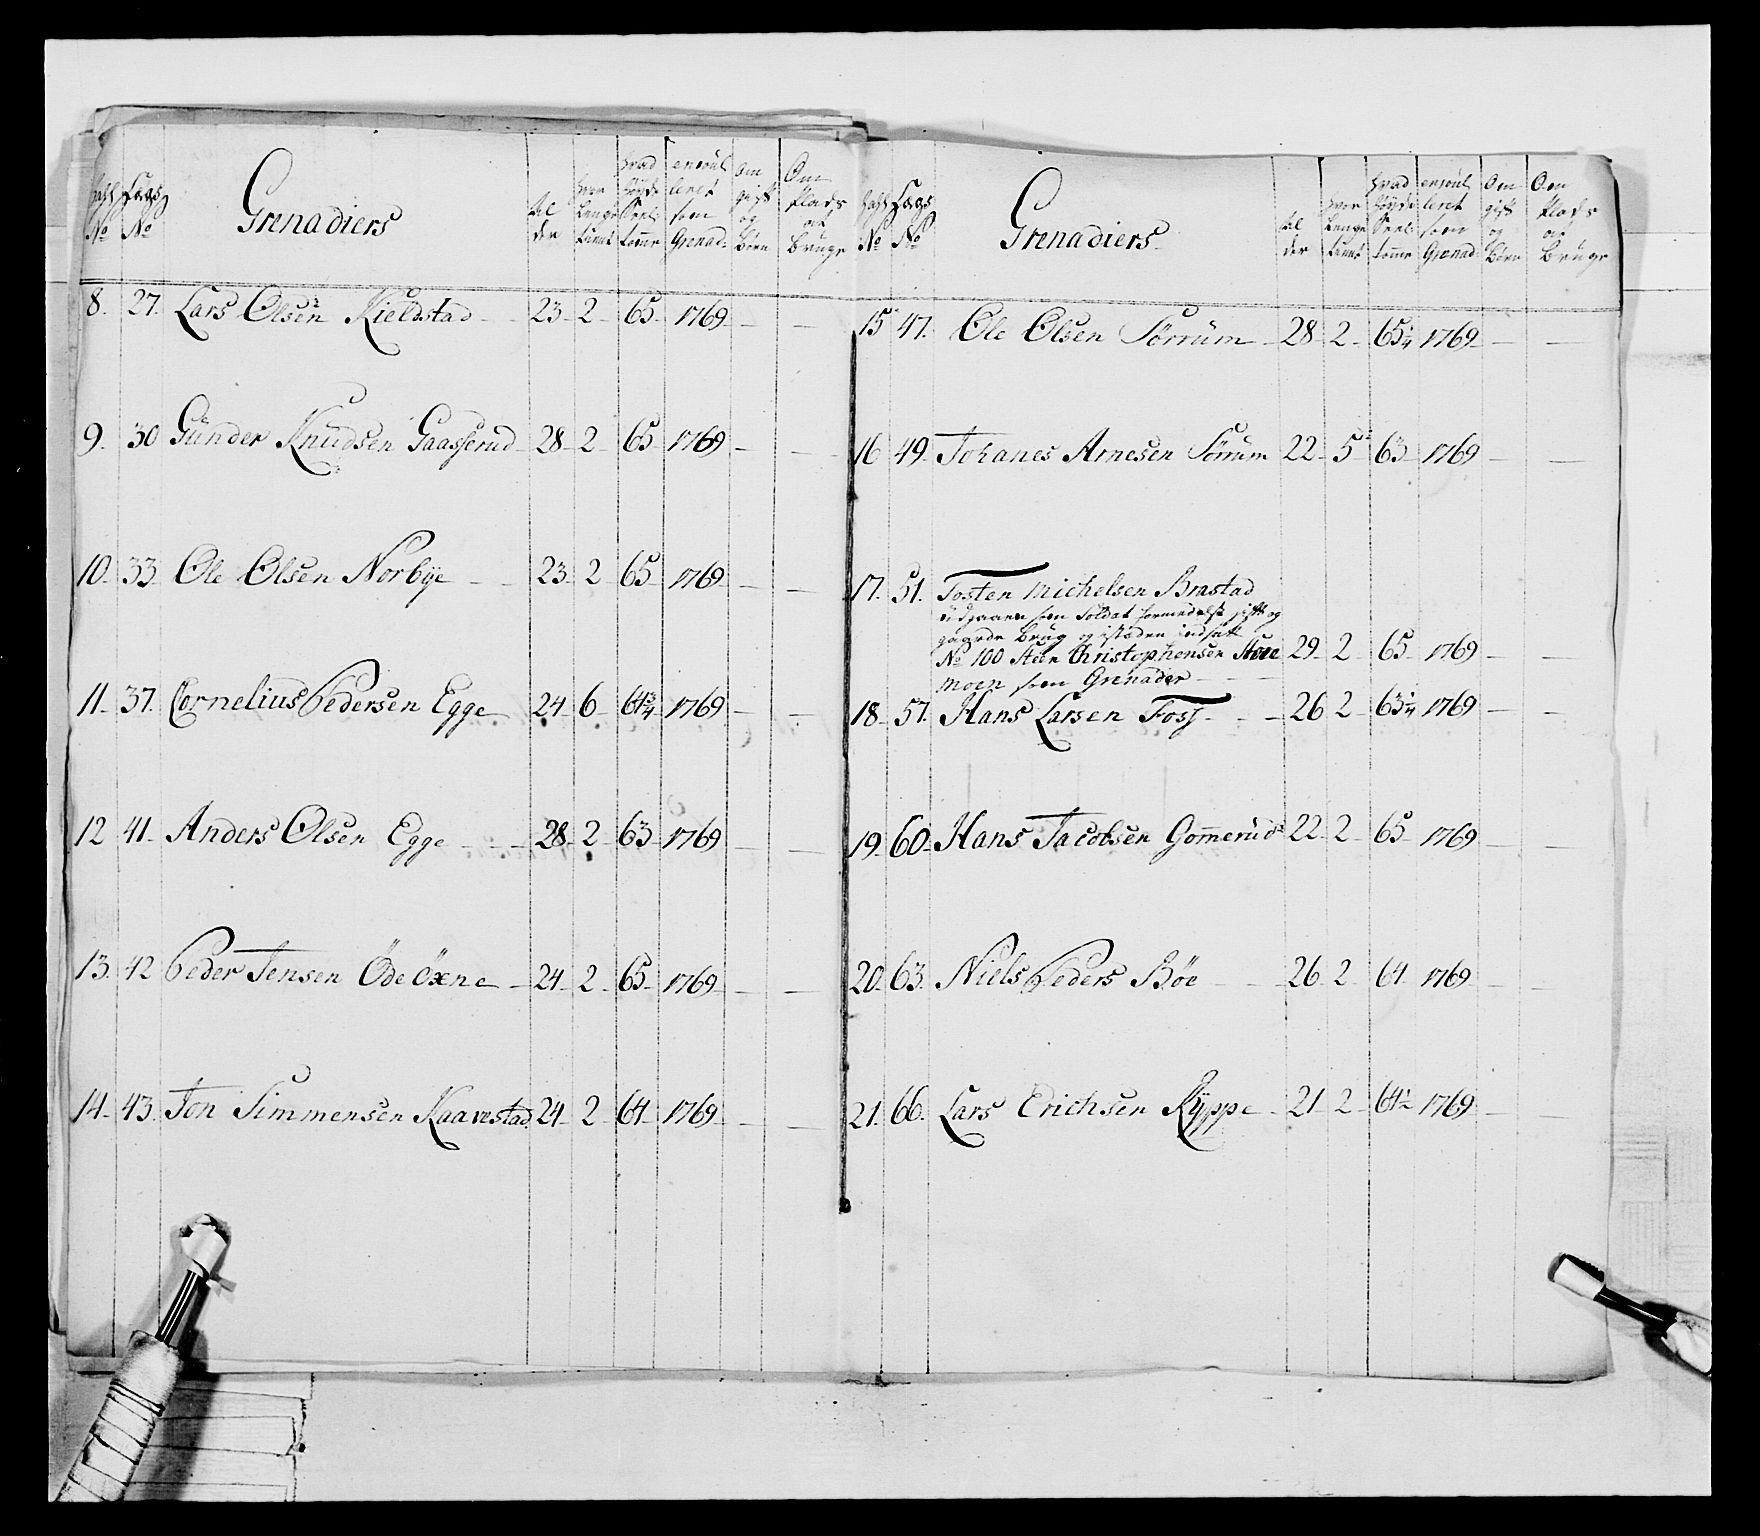 No No Grenadiers til der hvor Lenge tient hvad Høyde Seel: tomme enroul leret som Grenad: Om gift og Børn Om Plads at Bruge
8. 27. Lars Olsen Kieldstad 23 2 65 1769
9. 30 Gunder Knudsen Gaasserud 28 2 65 1769
10. 33. Ole Olsen Norbye 23 2 65 1769
11. 37. Cornelius Pedersen Egge 24 6 64 3/4 1769
12 41. Anders Olsen Egge 28 2 63 1769
13. 42 Peder Jensen Öde öxne 24 2 65 1769
14. 43. Jon Simmensen Kaavestad 24 2 64 1769
No No Grenadiers til der hvor Lenge tient hvad Høyde Seel: tomme enroul leret som Grenad: Om gift og Børn Om Plads at Bruge
15 47. Ole Olsen Sørrum 28 2 65 1/4 1769
16 49. Johanes Arnesen Sørum 22 5 63 1769
17. 51. Tosten Michelsen Brastad
udgaaen som Soldat formedelst gift og
gaarde Brug og isteden indsatt
No 100 Steen Christophensen Store 29 2 65 1769
moen som Grenader
18 57. Hans Larsen Foss 26 2 63 1/4 1769
19. 60. Hans Jacobsen Gom̅erud 22 2 65 1769
20. 63. Niels Peders Bøe 26 2 64 1769
21. 66. Lars Erichsen Ryppe 21 2 64 1/2 1769